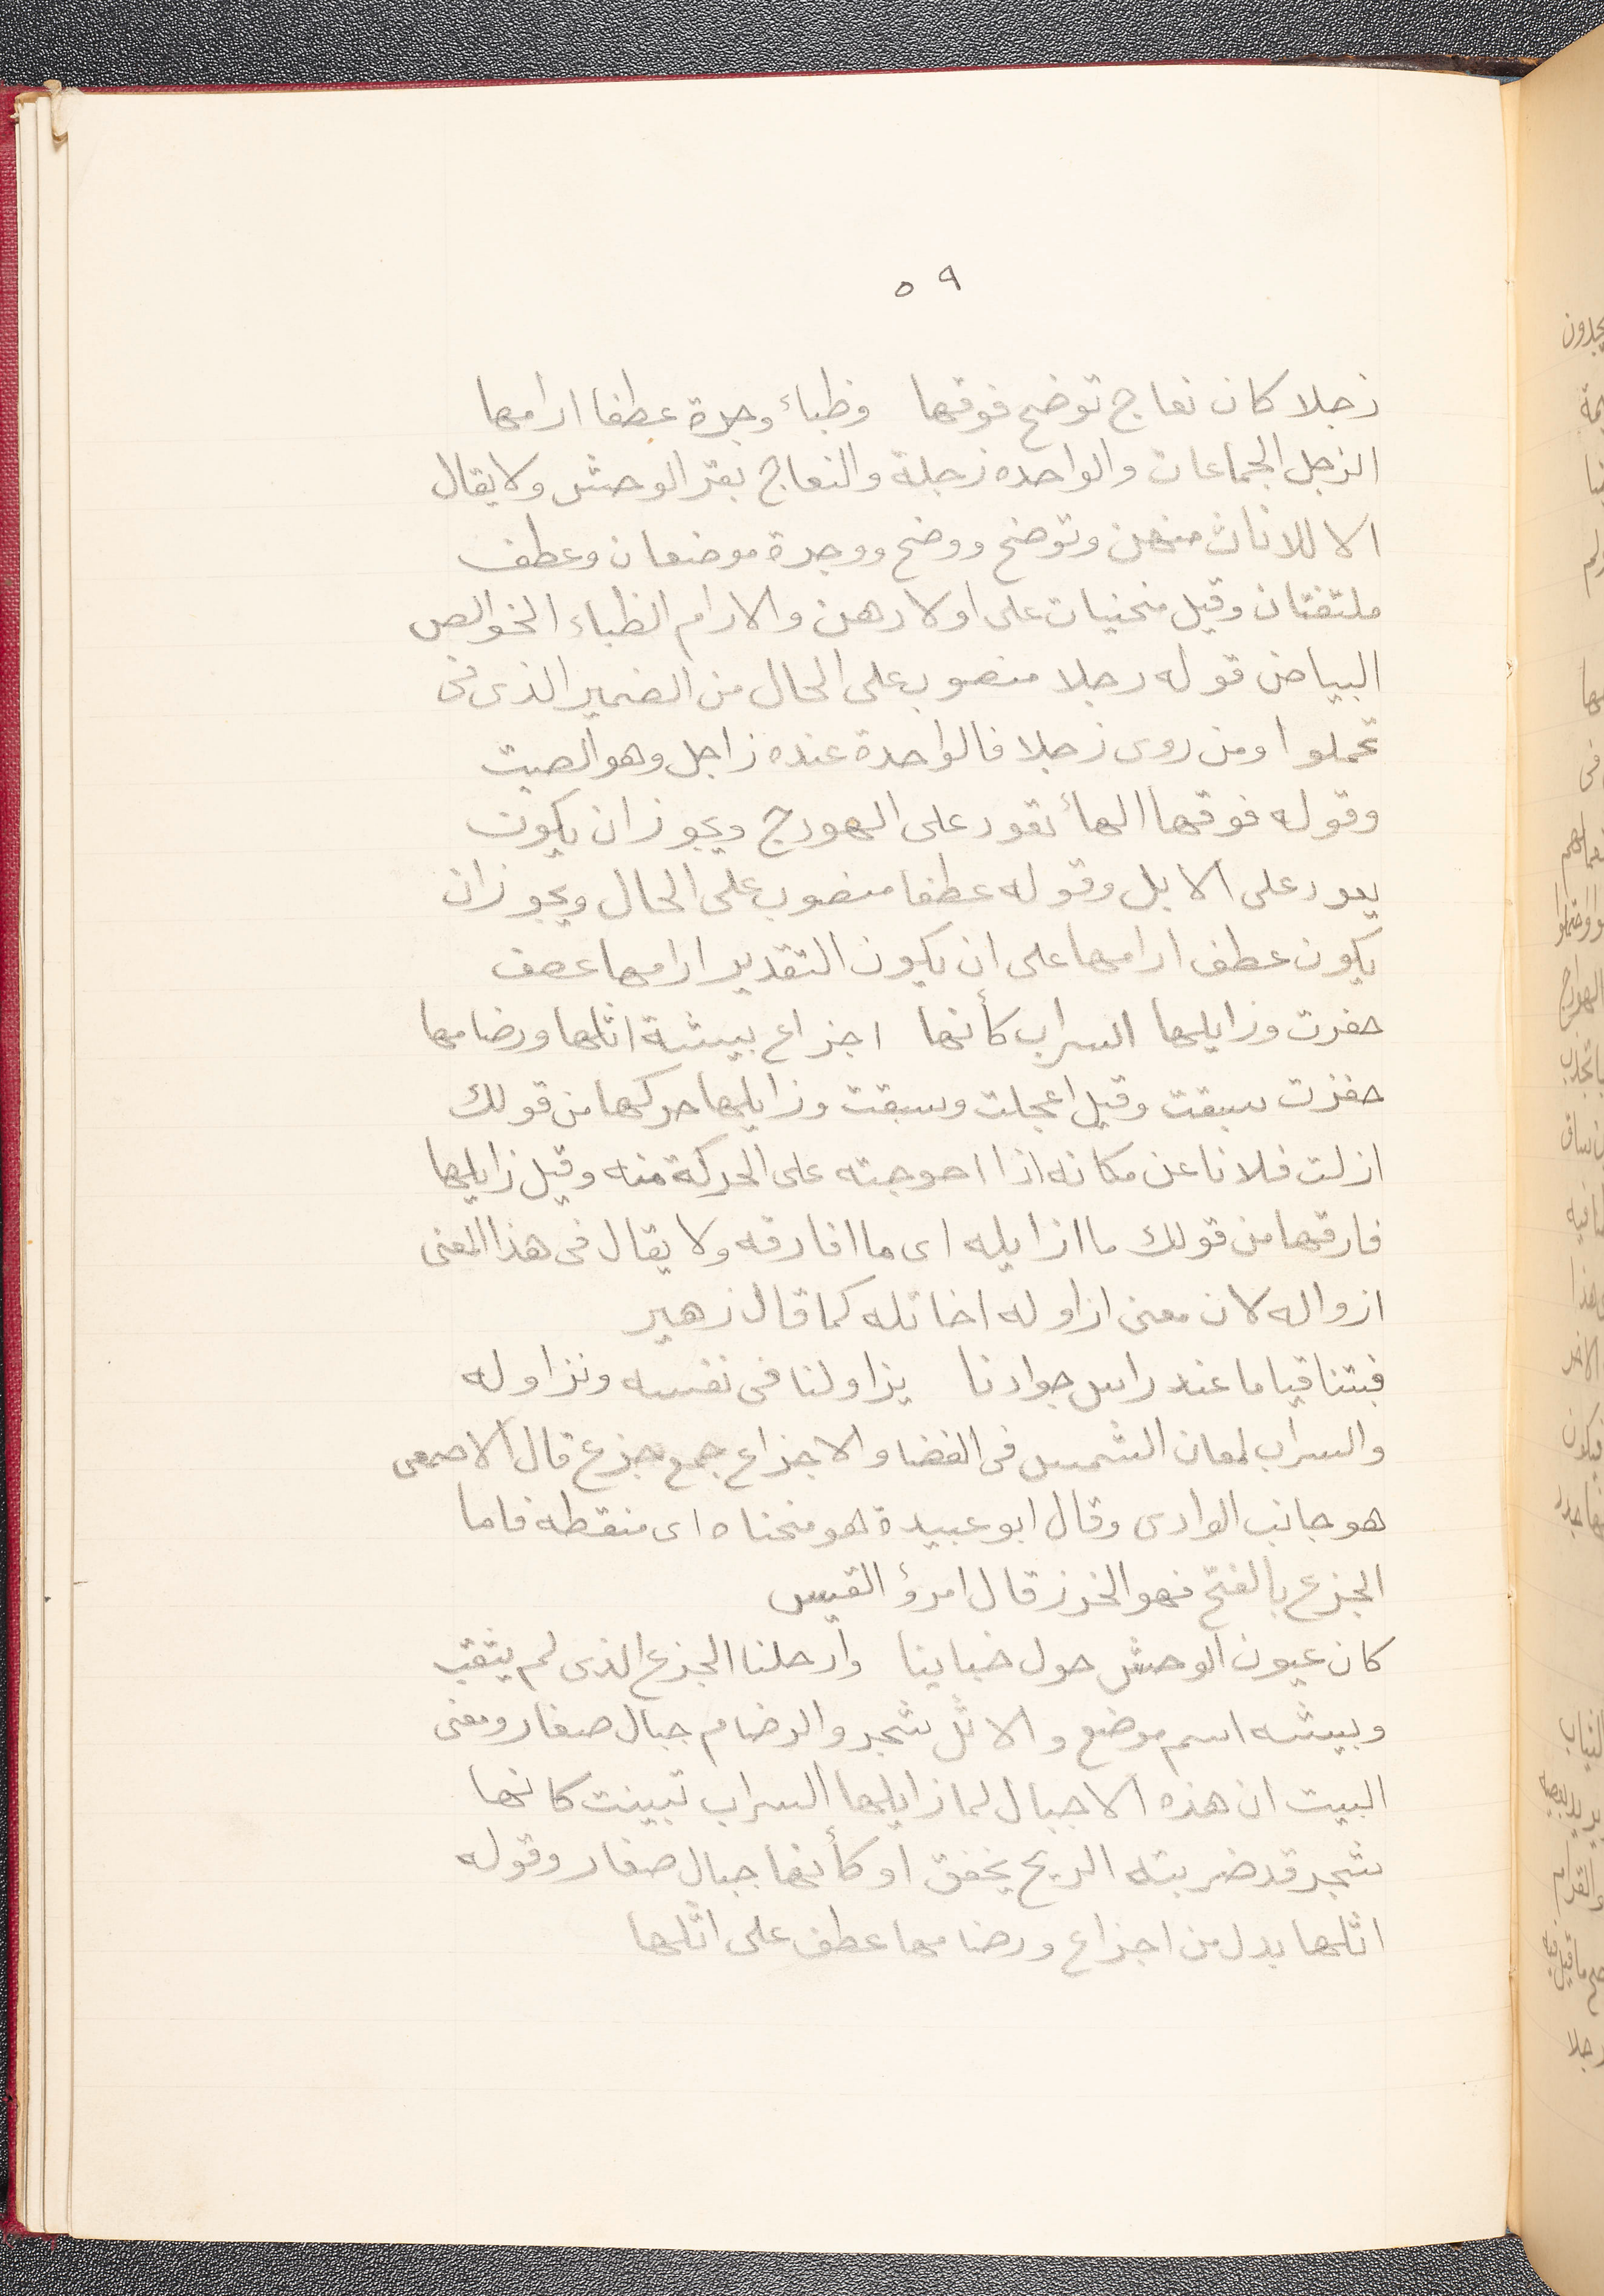 ٥٩
زجلا كان نعاج توضح فوقها وظباء وجرة عطفا ارامها
الزجل الجماعات والواحده زجلة والنعاج بقر الوحش ولا يقال
الا للاناث منهن وتوضح ووضح ووجرة موضعان وعطف
ملتفتان وقيل منحنيات على اولادهن والارام الظباء الخوالص
البياض قوله رجلا منصوب على الحال من الضمير الذى فى
تحملوا ومن روى زجلا فالواحدة عنده زاجل وهو الصيت
وقوله فوقها الهاء تقود على الهودج ويجوز ان يكون
يعود على الابل وقوله عطفا منصوب على الحال ويجوز ان
يكون عطف ارامها على ان يكون التقدير ارامها عصف
حفزت وزايلها السراب كأنها اجزاع بيشة اثلها ورضامها
حفزت سيقت وقيل اعجلت وسبقت وزايلها حركها من قولك
ازلت فلانا عن مكانه اذا احوجته على الحركة منه وقيل زايلها
فارقها من قولك ما ازايله اى ما افارقه ولا يقال فى هذا المعنى
ازواله لان معنى ازاوله اخاتله كما قال زهير
فبتنا قياما عند راس جوادنا يزاولنا فى نفسه ونزاوله
والسراب لمعان الشمس فى الفضا والاجزاع جمع جزع قال الاصمعى
هو جانب الوادى وقال ابو عبيدة هو منحناه اى منقطه فاما
الجزع بالفتح فهو الخرز قال امرؤ القيس
كان عيون الوحش حول خباينا وأرحلنا الجزع الذى لم يثقب
وبيشه اسم موضع والاثل شجر والرضام جبال صغار ومعنى
البيت ان هذه الاجبال لما زايلها السراب تبينت كانها
شجر قد ضربته الريح يخفق او كأنها جبال صغار وقوله
اثلها بدل من اجزاع ورضامها عطف على اثلها